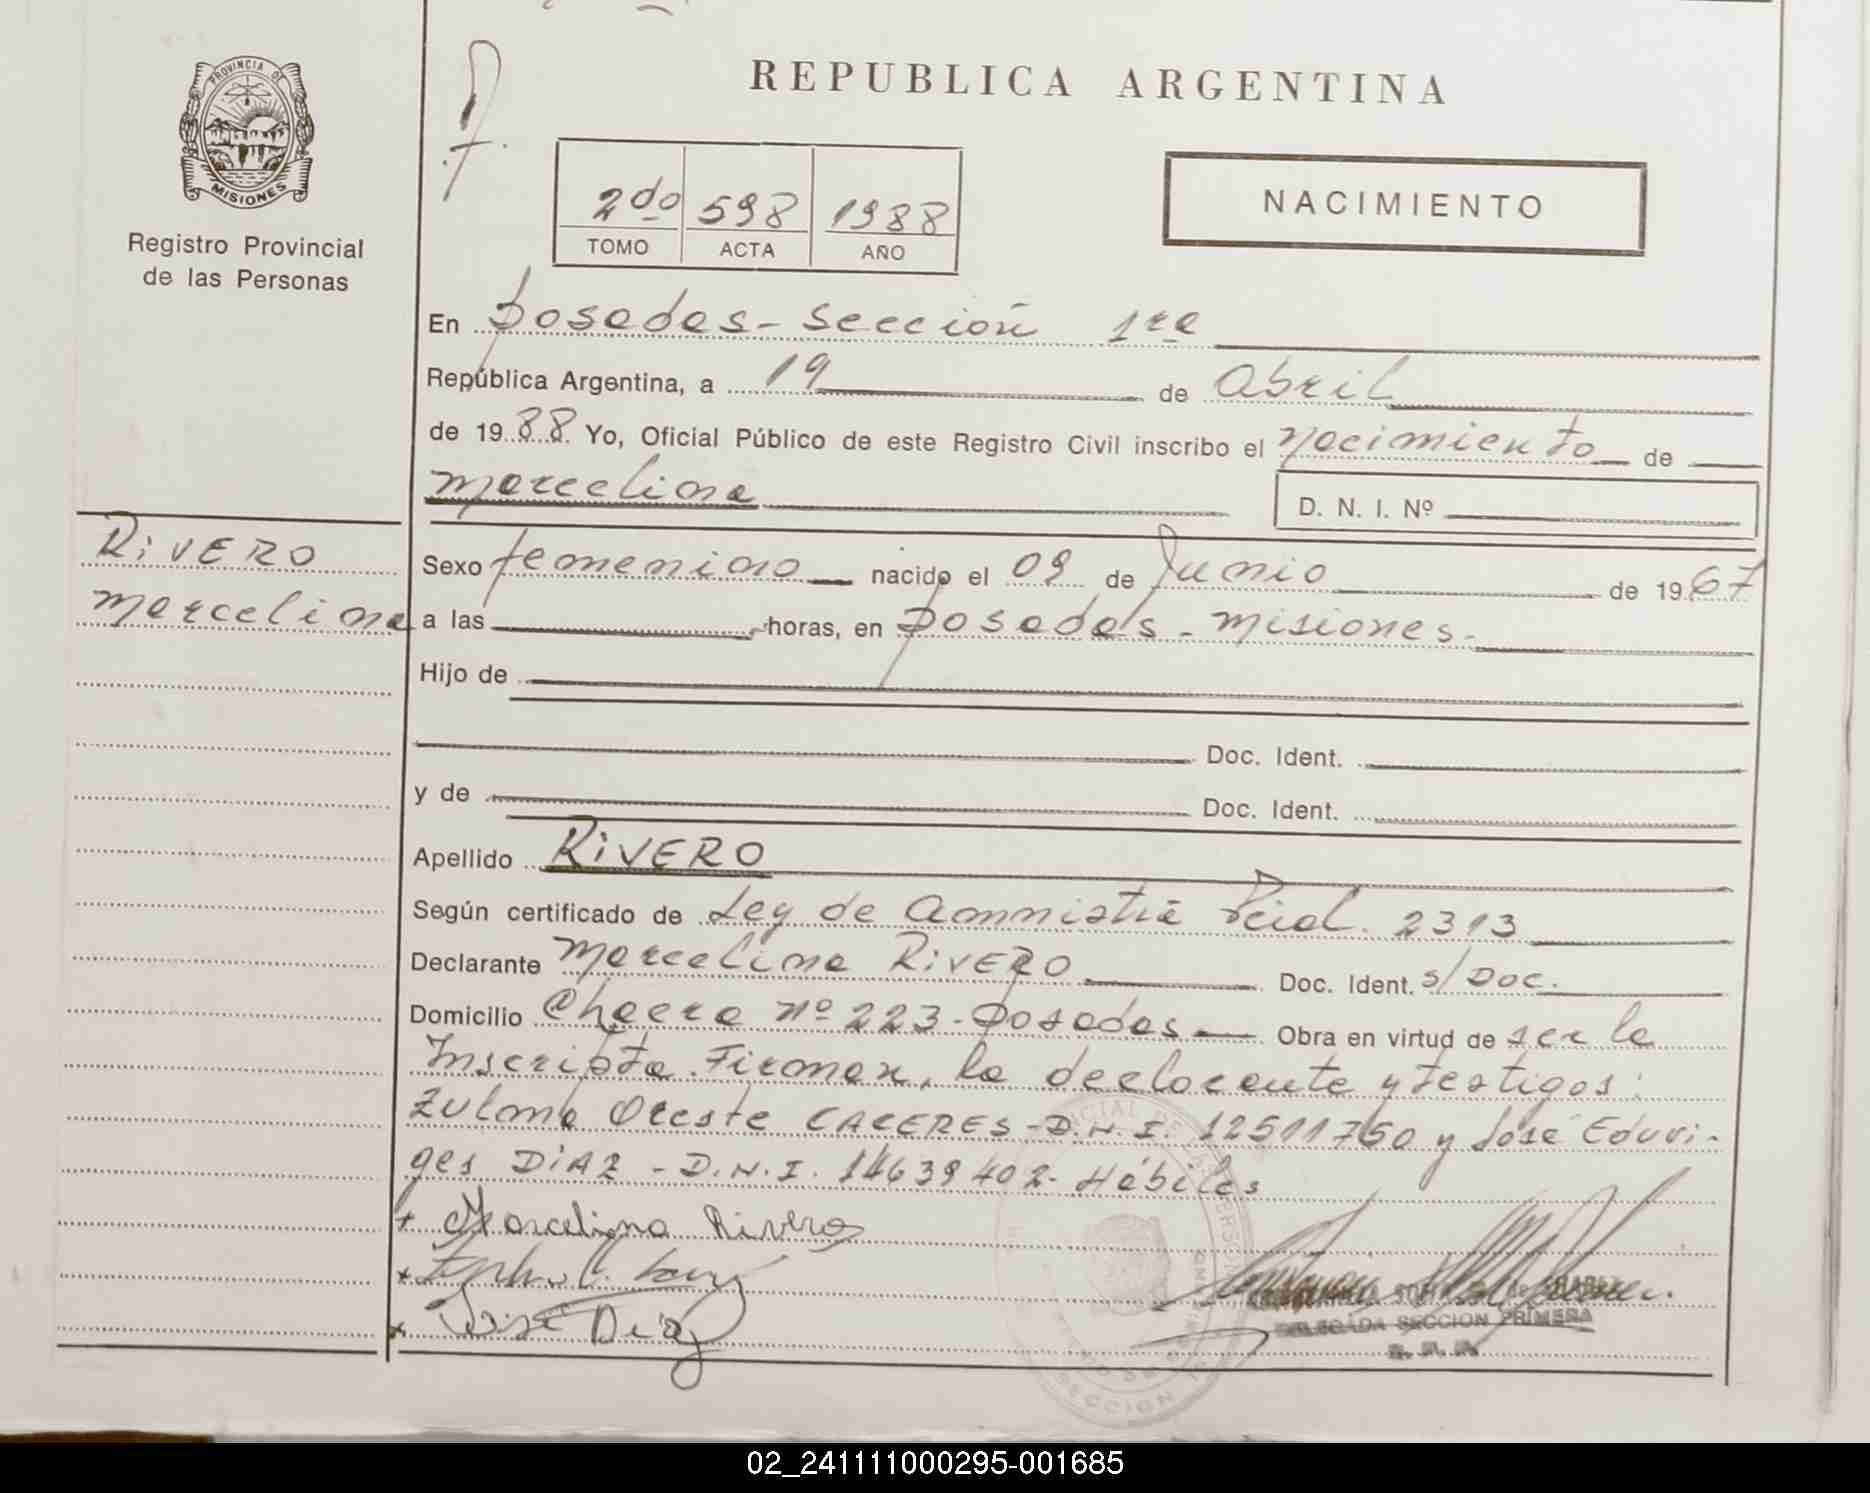 REPUBLICA ARGENTINA
PROVINCIA DE
MISIONES
Registro Provincial
de las Personas
2do 598 1988
TOMO ACTA AÑO
NACIMIENTO
En Posadas - Sección 1ra
República Argentina, a 19 de Abril
de 1988 Yo, Oficial Público de este Registro Civil inscribo el nacimiento de
Marcelina
D. N. I. Nº
RIVERO
Marcelina
Sexo femenino nacido el 09 de Junio de 1967
a las horas, en Posadas - Misiones.
Hijo de
Doc. Ident.
y de Doc. Ident.
Apellido RIVERO
Según certificado de Ley de Amnistia Pcial. 2313
Declarante Marcelina RIVERO Doc. Ident. s/Doc.
Domicilio Chacra nº 223 - Posadas Obra en virtud de ser la
Inscripta. Firman, la declarante y testigos:
Zulma Oreste CACERES - D.N.I. 12511750 y José Eduvi-
ges DIAZ - D.N.I. 14639402 - Hábiles
+ Marcelina Rivero
José Diaz
DELEGADA SECCION PRIMERA
02_241111000295-001685